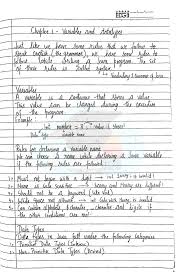 Chapter 1 - Variables and Datatypes
Just like we have some rules that we follow to
speak English (the grammar), we have some rules to
follow while writing a Java program. The set
of these rules is called syntax
Vocabulary & Grammar of Java
Variables
A variable is a container that stores a value.
This value can be changed during the execution
of the program
Example:
int number = 8; value it stores
Data type variable name
Rules for declaring a variable name
We can choose a name while declaring a Java variable
if the following rules are followed:
1. Must not begin with a digit → int 1arry; is invalid!
2. Name is case sensitive → Harry and harry are different!
3. Should not be a keyword (like void)
4. White space not allowed → int Code with Harry; is invalid
5. Can contain alphabets, $ character, _ character and digits if
the other conditions are met
Data Types
Data types in Java fall under the following categories
1. Primitive Data Types (Intrinsic)
2. Non-Primitive Data Types (Derived)